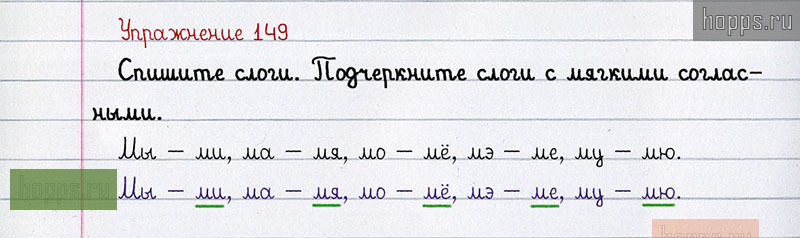 hopps.ru
Упражнение 149
Спишите слоги. Подчеркните слоги с мягкими соглас-
ными.
Мы – ми, ма – мя, мо – мё, мэ – ме, му – мю.
hopps.ru
Мы – ми, ма – мя, мо – мё, мэ – ме, му – мю.
hopps.ru